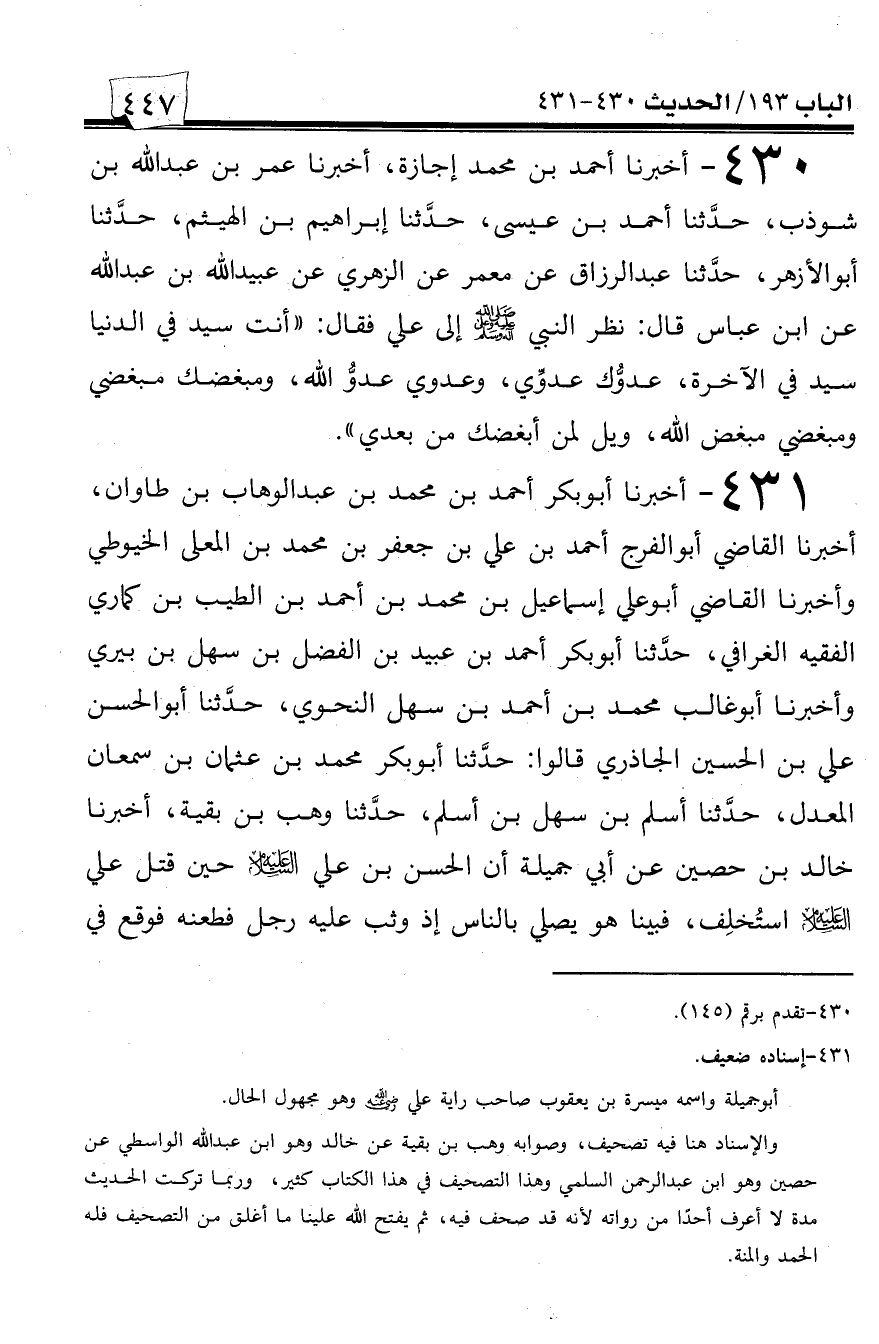 الباب ١٩٣/الحديث ٤٣٠-٤٣١
٤٤٧
٤٣٠- أخبرنا أحمد بن محمد إجازة، أخبرنا عمر بن عبدالله بن
شوذب، حدَّثنا أحمد بن عيسى، حدَّثنا إبراهيم بن الهيثم، حدَّثنا
أبوالأزهر، حدَّثنا عبدالرزاق عن معمر عن الزهري عن عبيدالله بن عبدالله
عن ابن عباس قال: نظر النبي ﷺ إلى علي فقال: «أنت سيد في الدنيا
سيد في الآخرة، عدوُّك عدوِّي، وعدوي عدوُّ الله، ومبغضك مبغضي
ومبغضي مبغض الله، ويل لمن أبغضك من بعدي».
٤٣١- أخبرنا أبوبكر أحمد بن محمد بن عبدالوهاب بن طاوان،
أخبرنا القاضي أبوالفرج أحمد بن علي بن جعفر بن محمد بن المعلى الخيوطي
وأخبرنا القاضي أبوعلي إسماعيل بن محمد بن أحمد بن الطيب بن كماري
الفقيه الغرافي، حدَّثنا أبوبكر أحمد بن عبيد بن الفضل بن سهل بن بيري
وأخبرنا أبوغالب محمد بن أحمد بن سهل النحوي، حدَّثنا أبوالحسن
علي بن الحسين الجاذري قالوا: حدَّثنا أبوبكر محمد بن عثمان بن سمعان
المعدل، حدَّثنا أسلم بن سهل بن أسلم، حدَّثنا وهب بن بقية، أخبرنا
خالد بن حصين عن أبي جميلة أن الحسن بن علي عليه السلام حين قتل علي
عليه السلام استُخلِف، فبينا هو يصلي بالناس إذ وثب عليه رجل فطعنه فوقع في
٤٣٠-تقدم برقم (١٤٥).
٤٣١-إسناده ضعيف.
أبوجميلة واسمه ميسرة بن يعقوب صاحب راية علي رضي الله عنه وهو مجهول الحال.
والإسناد هنا فيه تصحيف، وصوابه وهب بن بقية عن خالد وهو ابن عبدالله الواسطي عن
حصين وهو ابن عبدالرحمن السلمي وهذا التصحيف في هذا الكتاب كثير، وربما تركت الحديث
مدة لا أعرف أحدًا من رواته لأنه قد صحف فيه، ثم يفتح الله علينا ما أغلق من التصحيف فله
الحمد والمنة.